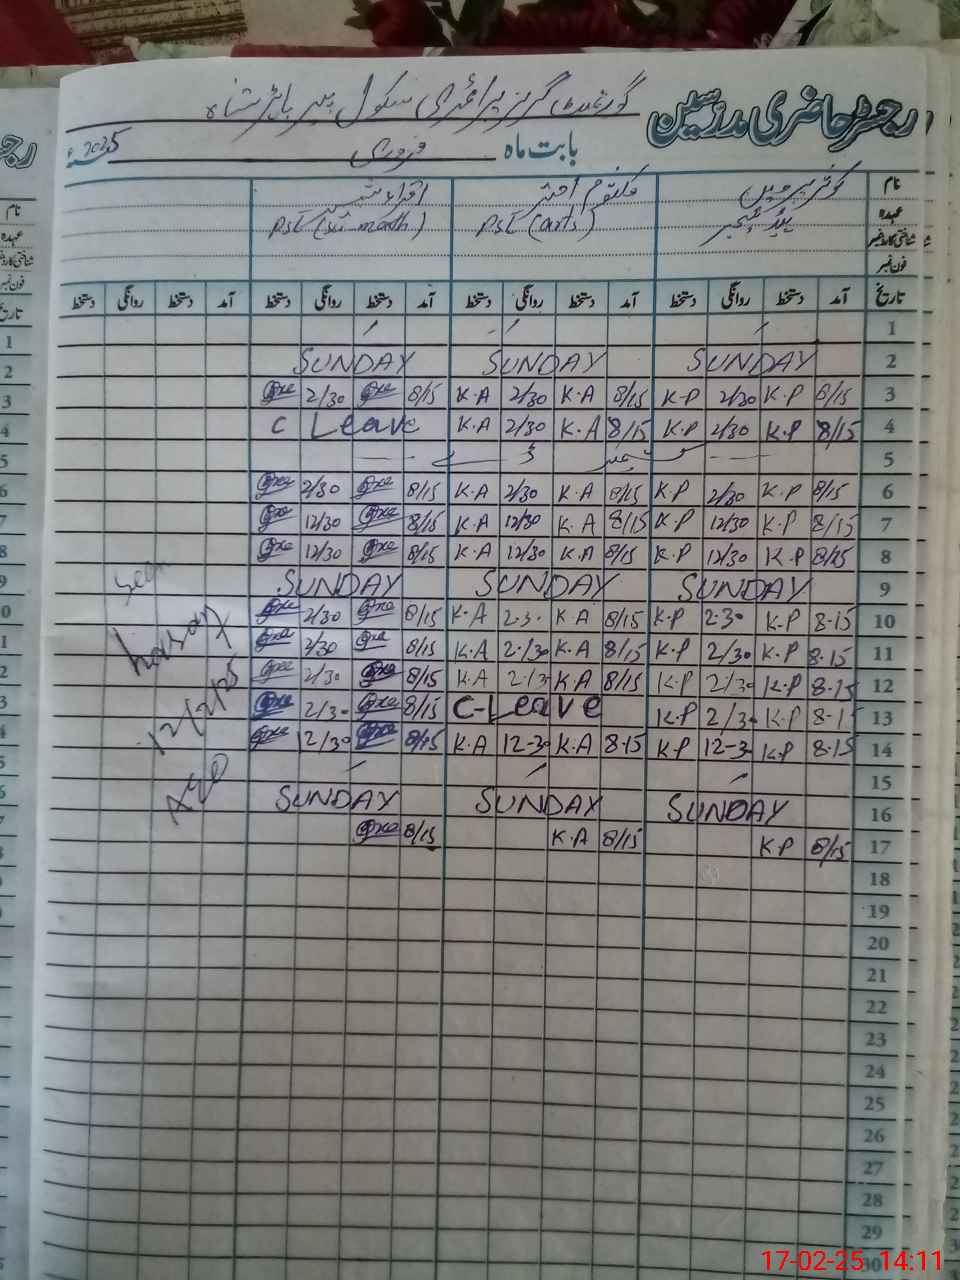 رجسٹر حاضری مدرسین گورنمنٹ گرلز پرائمری سکول پیر
بابت ماہ فروری 2025ء
نام کوثر پروین کلثوم اختر اقراء
عہدہ ہیڈ ٹیچر PST (arts) PST (sci-math)
شناختی کارڈ نمبر
فون نمبر
تاریخ آمد دستخط روانگی دستخط آمد دستخط روانگی دستخط آمد دستخط روانگی دستخط آمد دستخط روانگی دستخط
1
SUNDAY SUNDAY SUNDAY 2
2/30 8/15 K.A 2/30 K.A 8/15 K.P 2/30 K.P 8/15 3
C Leave K.A 2/30 K.A 8/15 K.P 2/30 K.P 8/15 4
5
2/30 8/15 K.A 2/30 K.A 8/15 K.P 2/30 K.P 8/15 6
12/30 8/15 K.A 12/30 K.A 8/15 K.P 12/30 K.P 8/15 7
12/30 8/15 K.A 12/30 K.A 8/15 K.P 12/30 K.P 8/15 8
SUNDAY SUNDAY SUNDAY 9
2/30 8/15 K.A 2.30 K.A 8/15 K.P 2.30 K.P 8.15 10
2/30 8/15 K.A 2.30 K.A 8/15 K.P 2/30 K.P 8.15 11
2/30 8/15 K.A K.A 8/15 K.P 2/30 K.P 8.15 12
2/30 8/15 C-Leave K.P 2/30 K.P 8.15 13
12/30 8/15 K.A 12-30 K.A 8.15 K.P 12-30 K.P 8.15 14
15
SUNDAY SUNDAY SUNDAY 16
8/15 K.A 8/15 K.P 8/15 17
18
19
20
21
22
23
24
25
26
27
28
29
30
Seen
12/2/25
17-02-25 14:11